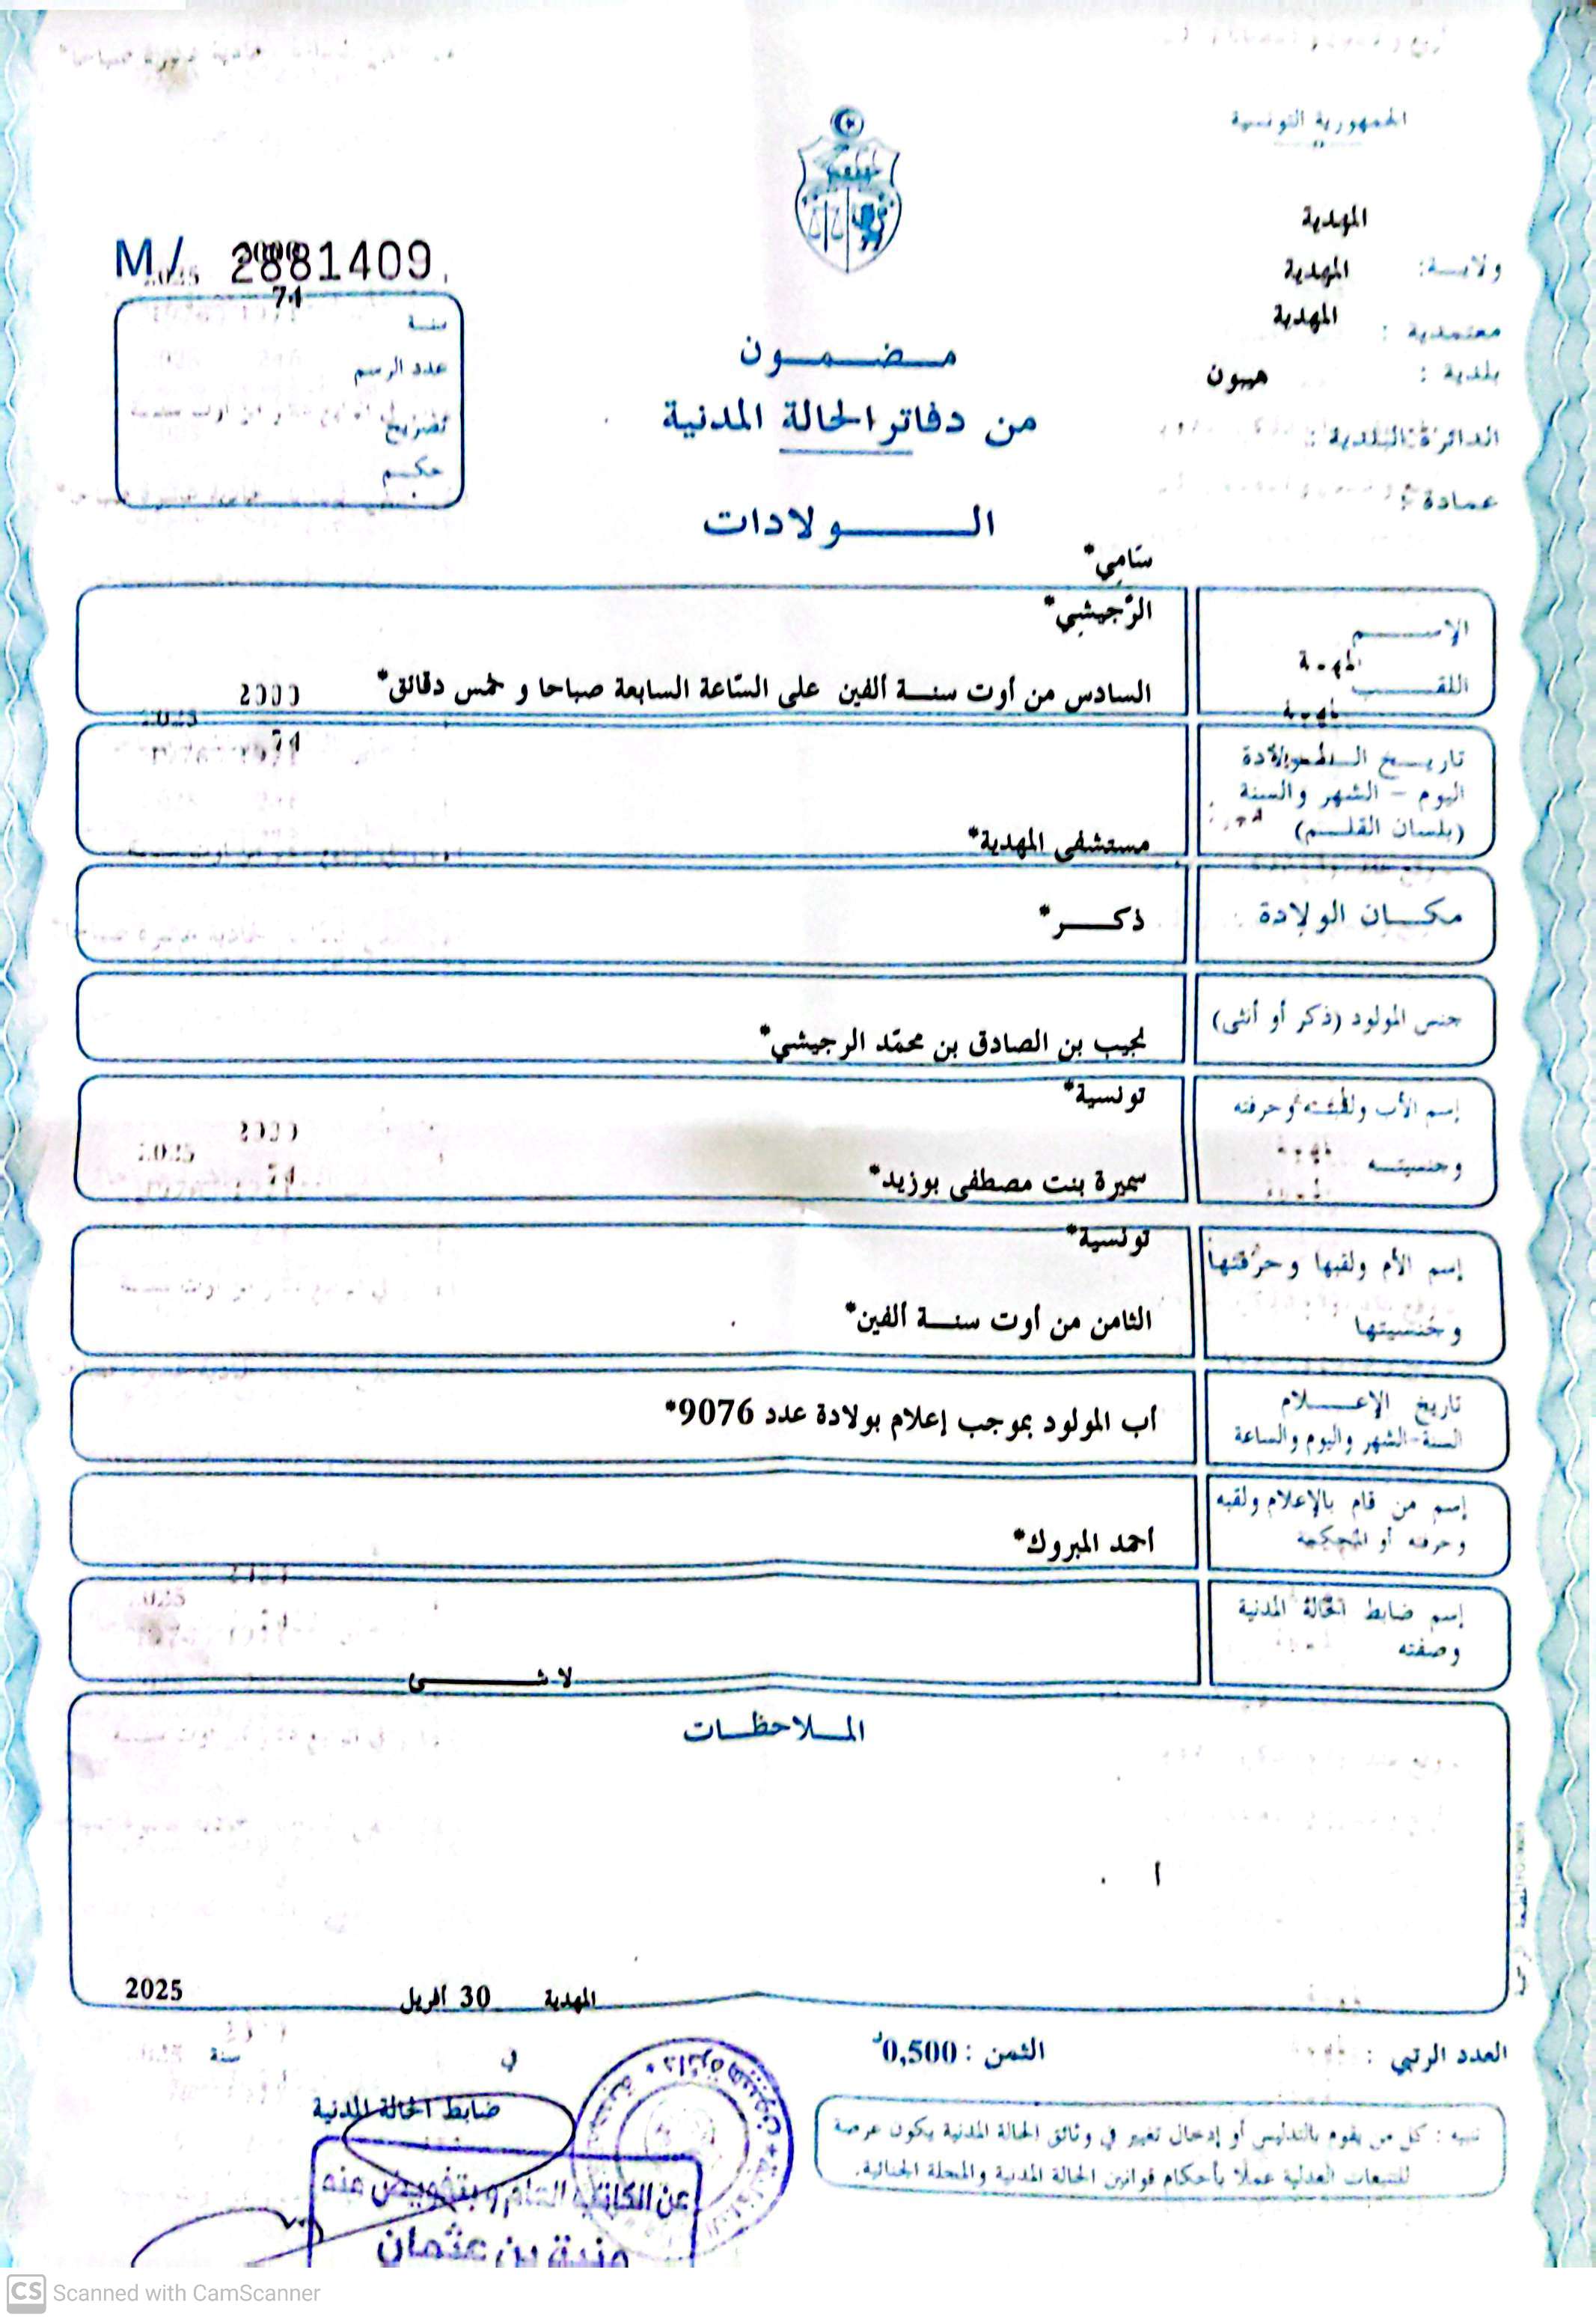 الجمهورية التونسية
المهدية
ولاية: المهدية
معتمدية : المهدية
بلدية : هيبون
الدائرة البلدية :
عمادة :
M/ 2881409
2000
71
سنة
عدد الرسم
تصريح
حكم
مضمون
من دفاتر الحالة المدنية
الولادات
سَامِي*
الرّجيشِي*
الاسم
اللقب
السادس من أوت سنة ألفين على السّاعة السابعة صباحا و خمس دقائق*
تاريخ الولادة
اليوم - الشهر والسنة
(بلسان القلم)
مستشفى المهدية*
مكان الولادة
ذكر*
جنس المولود (ذكر أو أنثى)
نجيب بن الصادق بن محمّد الرجيشي*
تونسية*
إسم الأب ولقبه وحرفته
وجنسيته
سميرة بنت مصطفى بوزيد*
تونسية*
إسم الأم ولقبها وحرفتها
وجنسيتها
الثامن من أوت سنة ألفين*
تاريخ الإعلام
السنة-الشهر واليوم والساعة
أب المولود بموجب إعلام بولادة عدد 9076*
إسم من قام بالإعلام ولقبه
وحرفته أو المحكمة
احمد المبروك*
إسم ضابط الحالة المدنية
وصفته
لا شئ
الملاحظات
المهدية 30 أفريل 2025
العدد الرتبي :
الثمن : 0,500د
في سنة
ضابط الحالة المدنية
تنبيه : كل من يقوم بالتدليس أو إدخال تغيير في وثائق الحالة المدنية يكون عرضة
للتتبعات العدلية عملا بأحكام قوانين الحالة المدنية والمجلة الجنائية.
عن الكاتب العام و بتفويض منه
بن عثمان
CS Scanned with CamScanner